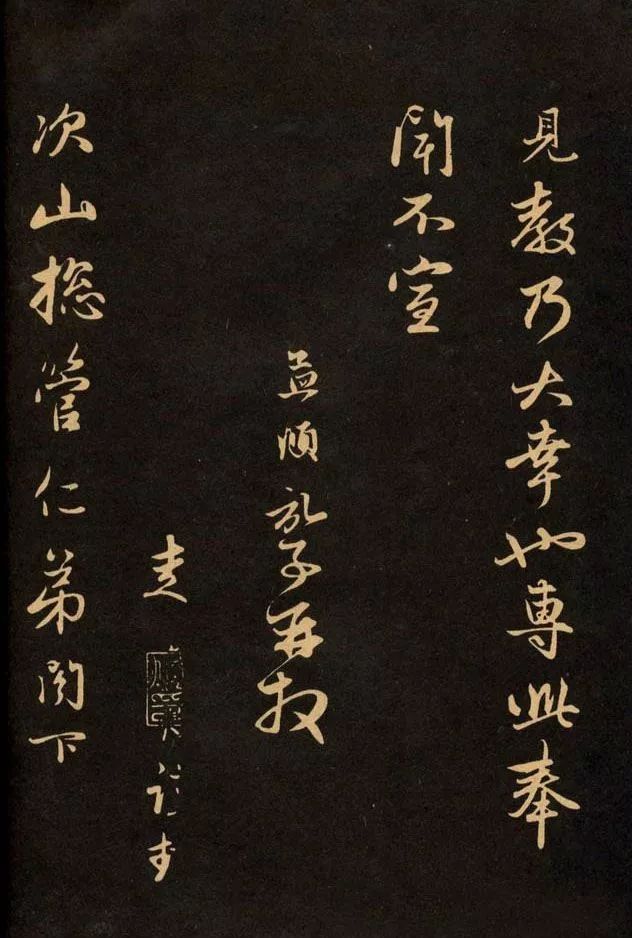 見教乃大幸也專此奉
聞不宣
孟頫頓首再拜
次山總管仁弟閣下